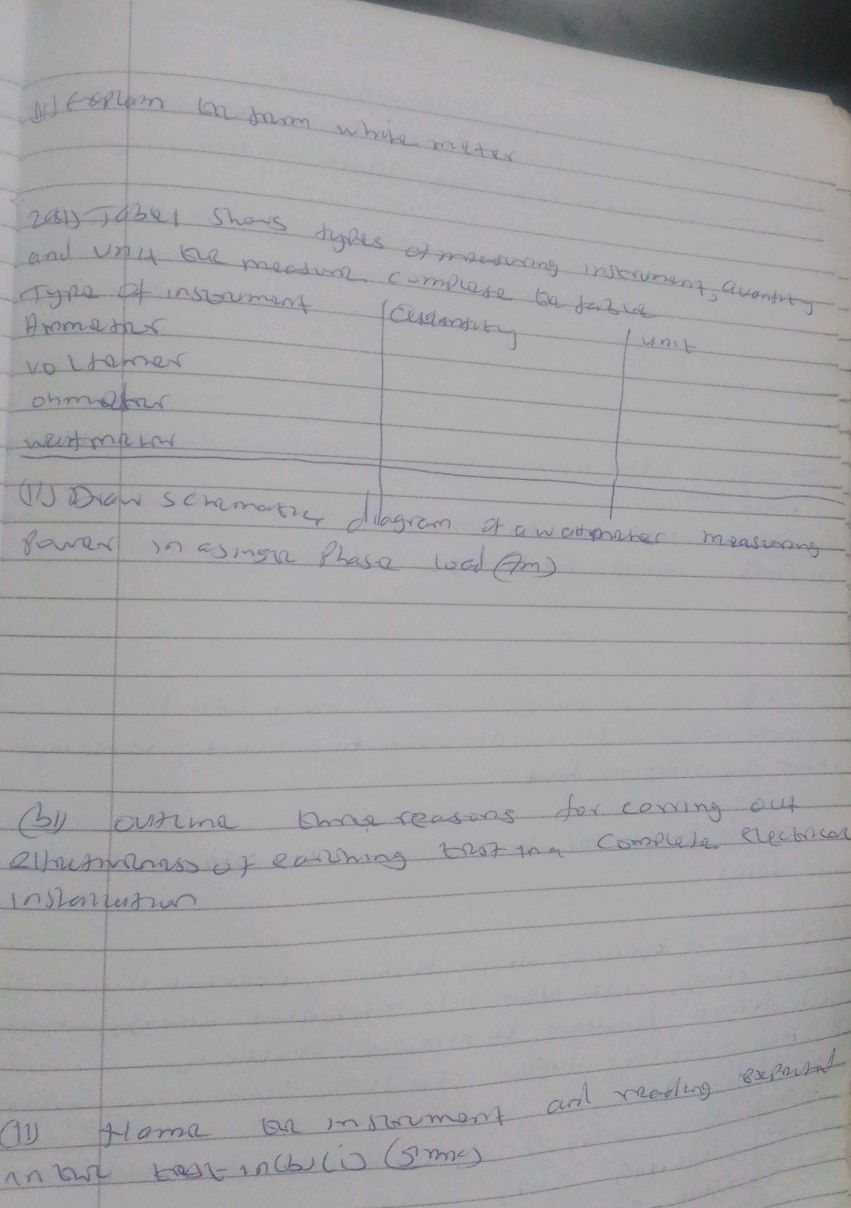 ii) Explain the term whole meter
2(a)i) Table 1 shows types of measuring instrument, Quantity
and unit the measure complete the table
Type of instrument | Quantity | unit
Ammeter
voltameter
ohmmeter
wattmeter
(ii) Draw schematic diagram of a wattmeter measuring
power in a single Phase load (7m)
(b)i) outline three reasons for carring out
effectiveness of earthing test in a complete electrical
installation
(ii) Name the instrument and reading expected
in the test in (b) (i) (5mks)